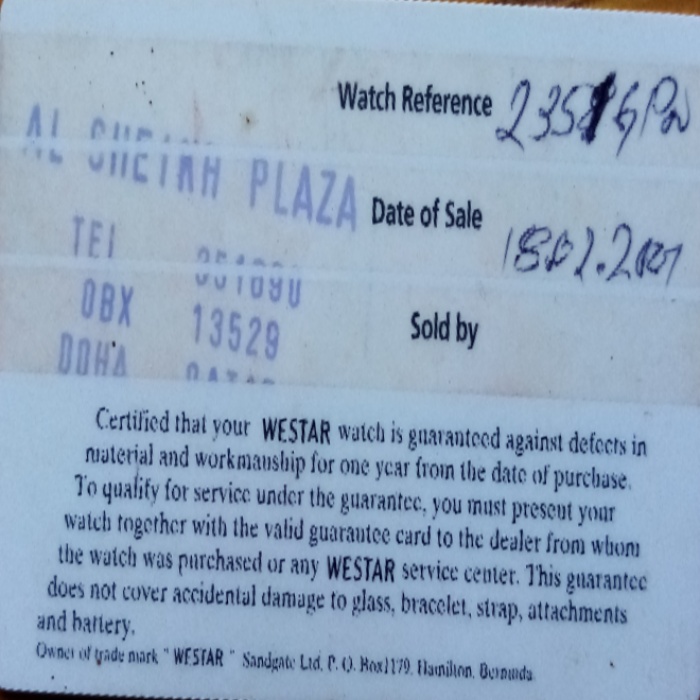 Watch Reference
AL SHEIKH PLAZA
Date of Sale
TEL
OBX 13529
Sold by
DOHA QATAR
Certified that your WESTAR watch is guaranteed against defects in
material and workmanship for one year from the date of purchase.
To qualify for service under the guarantee, you must present your
watch together with the valid guarantee card to the dealer from whom
the watch was purchased or any WESTAR service center. This guarantee
does not cover accidental damage to glass, bracelet, strap, attachments
and battery.
Owner of trade mark " WESTAR " Sandgate Ltd. P. O. Box1179, Hamilton, Bermuda